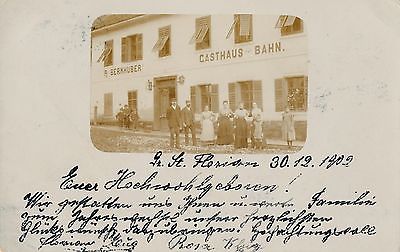 R. BERNHUBER
GASTHAUS - BAHN.
Gr. St. Florian 30.12.1902
Euer Hochwohlgeboren!
Wir gestatten uns Ihnen u. werte Familie
zum Jahreswechsel unsere herzlichsten
Glückwünsche darzubringen. Hochachtungsvoll
Rosa